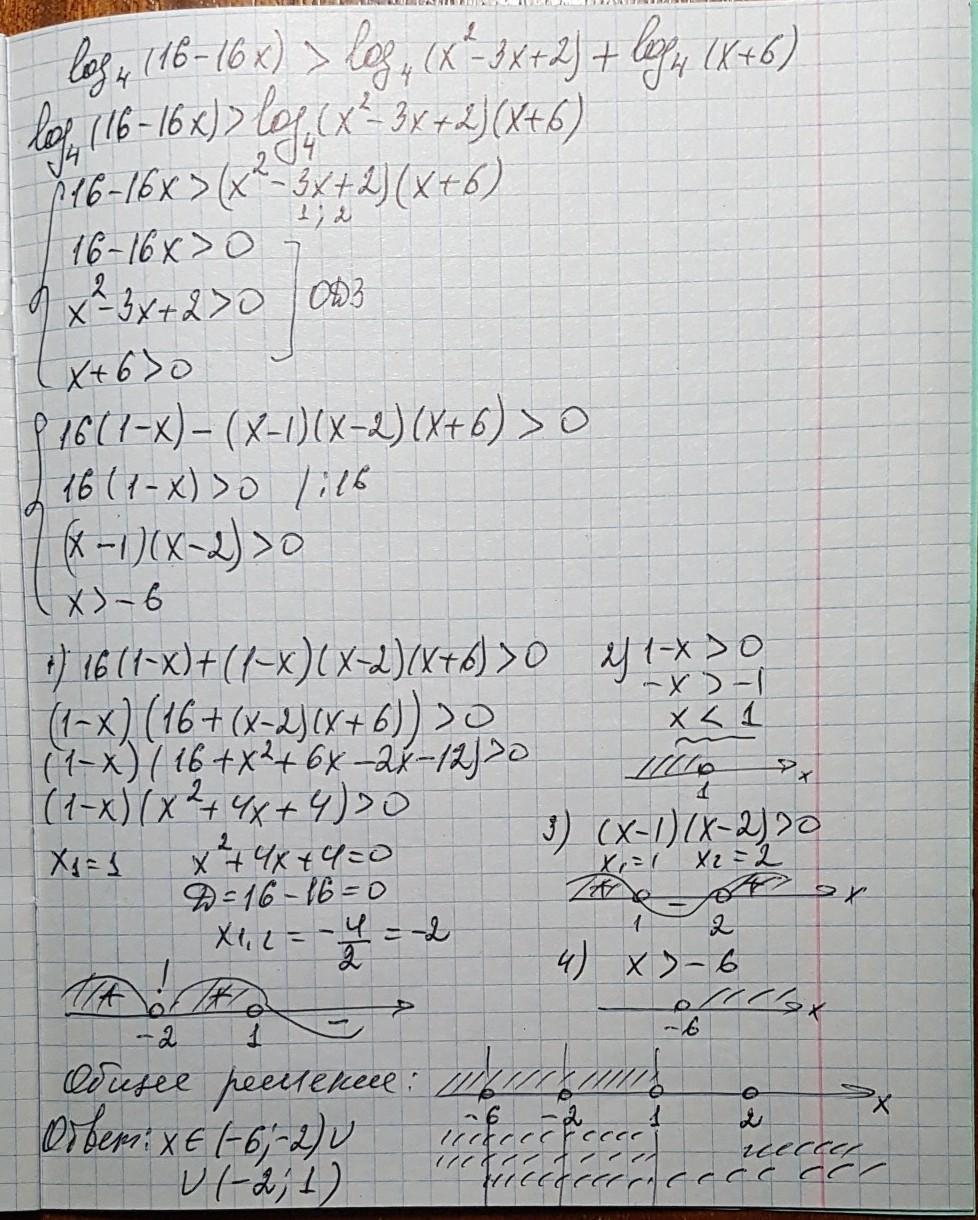 log₄(16-16x) > log₄(x²-3x+2) + log₄(x+6)
log₄(16-16x) > log₄(x²-3x+2)(x+6)
16-16x > (x²-3x+2)(x+6)
1; 2
16-16x > 0
x²-3x+2 > 0
ОДЗ
x+6 > 0
16(1-x) - (x-1)(x-2)(x+6) > 0
16(1-x) > 0 /:16
(x-1)(x-2) > 0
x > -6
1) 16(1-x)+(1-x)(x-2)(x+6) > 0
(1-x)(16+(x-2)(x+6)) > 0
(1-x)(16+x²+6x-2x-12) > 0
(1-x)(x²+4x+4) > 0
x₁=1 x²+4x+4=0
D=16-16=0
x₁,₂ = -4/2 = -2
+ ! + -
-2 1
2) 1-x > 0
-x > -1
x < 1
x
1
3) (x-1)(x-2) > 0
x₁=1 x₂=2
+ - + x
1 2
4) x > -6
x
-6
Общее решение:
x
-6 -2 1 2
Ответ: x∈(-6;-2)∪
∪(-2;1)